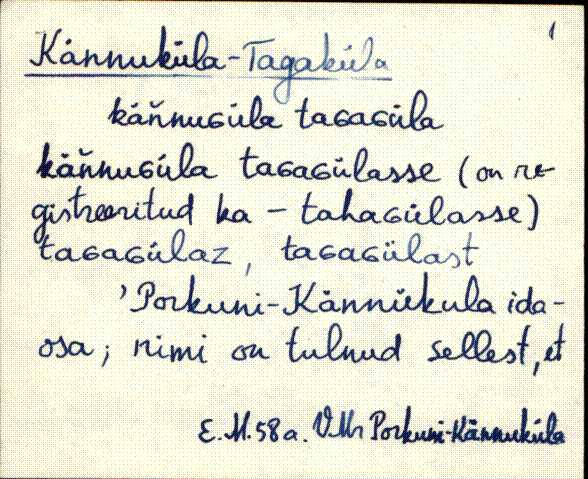 1
Kännuküla-Tagaküla
käňnuɢüla taɢaɢüla
käňnuɢüla taɢaɢülasse (on re-
gistreeritud ka - tahaɢülasse)
taɢaɢülaz, taɢaɢülast
'Porkuni-Kännüküla ida-
osa; nimi on tulnud sellest, et
E. M. 58a. VMr Porkuni-Kännuküla